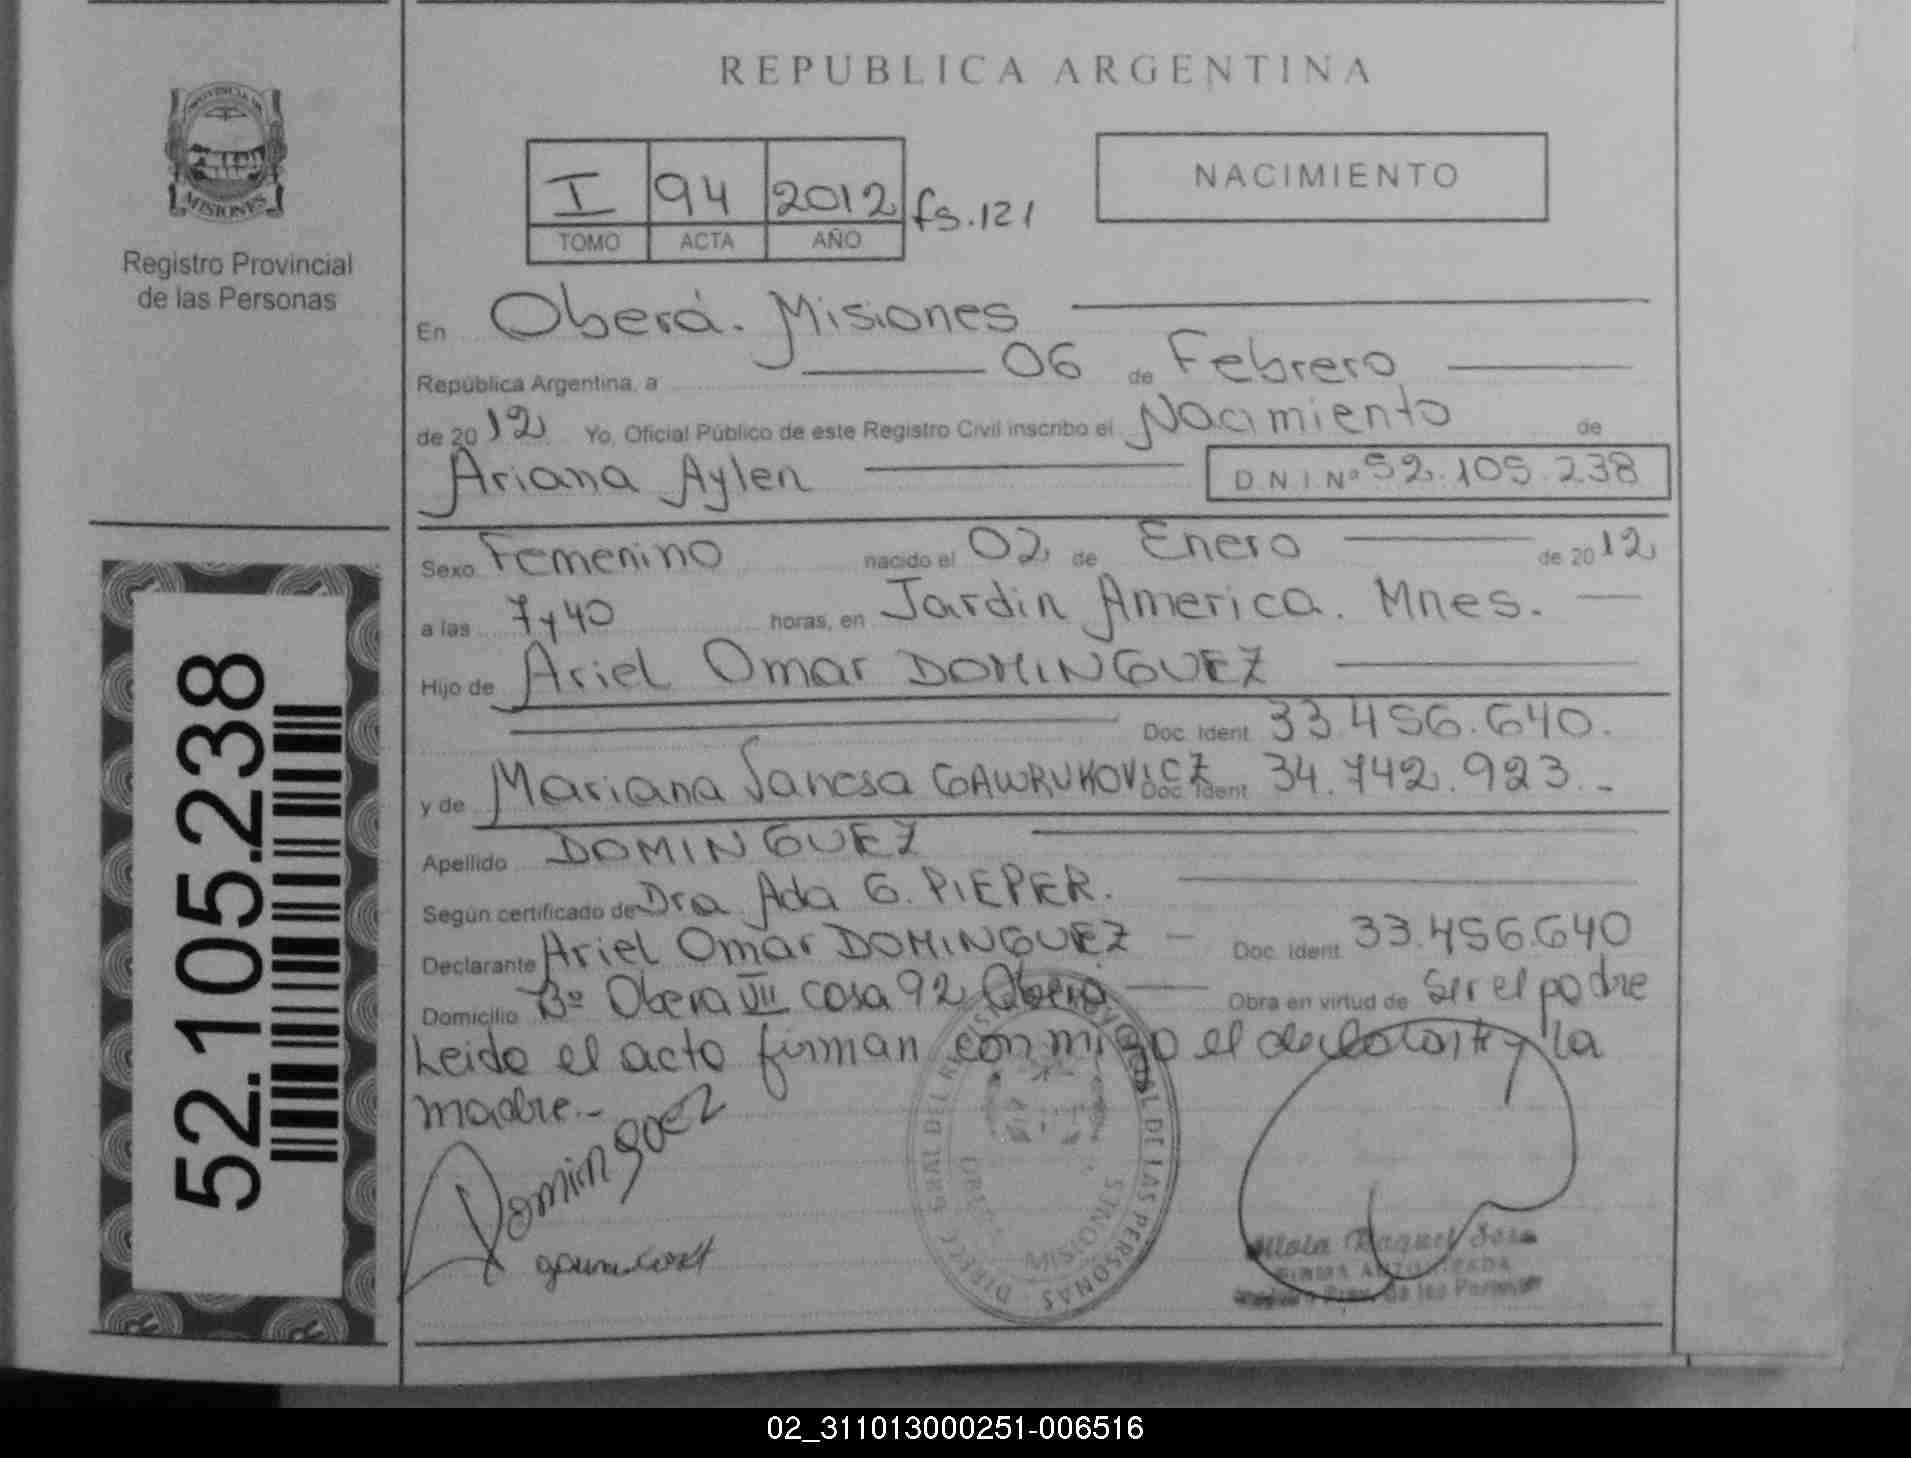 REPUBLICA ARGENTINA
PROVINCIA DE
MISIONES
Registro Provincial
de las Personas
I 94 2012 fs. 121
TOMO ACTA AÑO
NACIMIENTO
En Oberá. Misiones
República Argentina, a 06 de Febrero
de 2012 Yo, Oficial Público de este Registro Civil inscribo el Nacimiento de
Ariana Aylen D N I Nº 52.105.238
Sexo Femenino nacido el 02 de Enero de 2012
a las 7 y 40 horas, en Jardin America. Mnes.
Hijo de Ariel Omar DOMINGUEZ
Doc. Ident. 33.456.640.
y de Mariana Vanesa GAWRUKOVICZ Doc. Ident. 34.742.923.-
Apellido DOMINGUEZ
Según certificado de Dra Ada G. PIEPER.
Declarante Ariel Omar DOMINGUEZ - Doc. Ident. 33.456.640
Domicilio Bº Obera VII casa 92 Obera Obra en virtud de ser el padre
Leido el acto firman con migo el declarante y la
madre.-
Dominguez
DIRECC. GRAL DEL REGISTRO PROVINCIAL DE LAS PERSONAS
MISIONES
Raquel
FIRMA AUTORIZADA
Prov. de las Personas
52.105.238
02_311013000251-006516